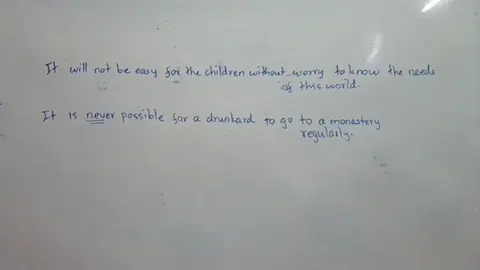 It will not be easy for the children without worry to know the needs
of this world.
It is never possible for a drunkard to go to a monastery
regularly.